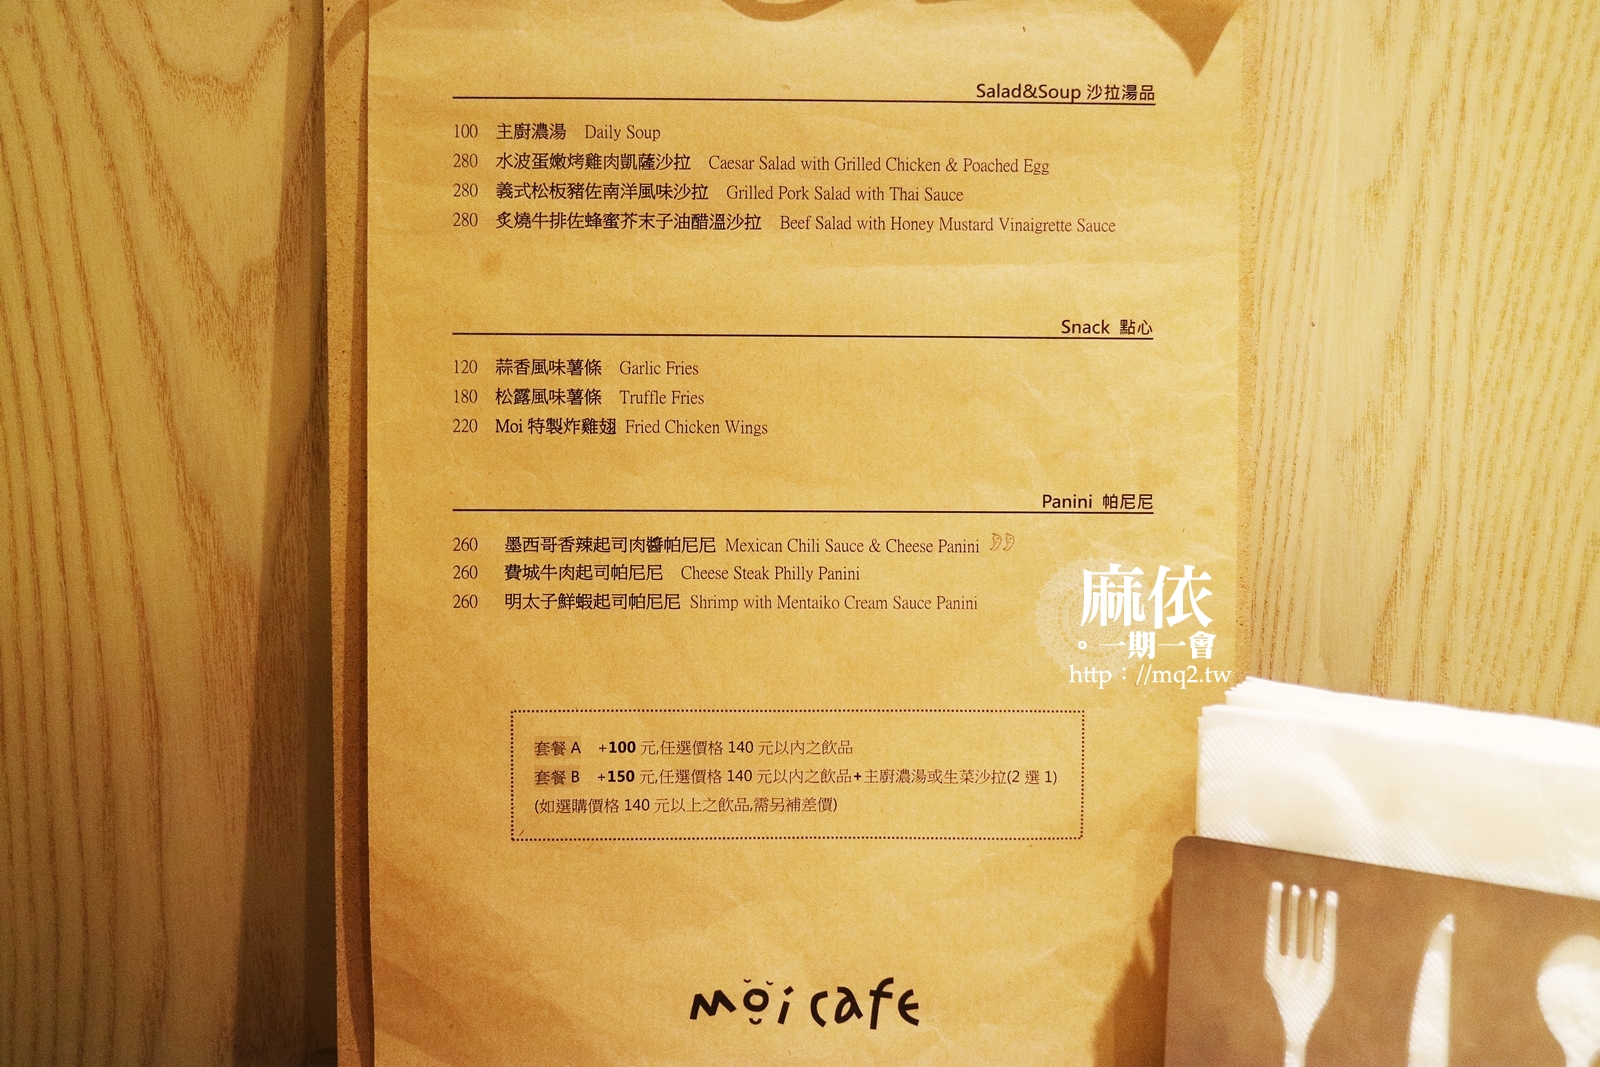 Salad&Soup 沙拉湯品
100 主廚濃湯 Daily Soup
280 水波蛋嫩烤雞肉凱薩沙拉 Caesar Salad with Grilled Chicken & Poached Egg
280 義式松板豬佐南洋風味沙拉 Grilled Pork Salad with Thai Sauce
280 炙燒牛排佐蜂蜜芥末子油醋溫沙拉 Beef Salad with Honey Mustard Vinaigrette Sauce
Snack 點心
120 蒜香風味薯條 Garlic Fries
180 松露風味薯條 Truffle Fries
220 Moi 特製炸雞翅 Fried Chicken Wings
Panini 帕尼尼
260 墨西哥香辣起司肉醬帕尼尼 Mexican Chili Sauce & Cheese Panini
260 費城牛肉起司帕尼尼 Cheese Steak Philly Panini
260 明太子鮮蝦起司帕尼尼 Shrimp with Mentaiko Cream Sauce Panini
麻依
。一期一會
http：//mq2.tw
套餐 A +100 元,任選價格 140 元以內之飲品
套餐 B +150 元,任選價格 140 元以內之飲品+主廚濃湯或生菜沙拉(2 選 1)
(如選購價格 140 元以上之飲品,需另補差價)
moi cafe